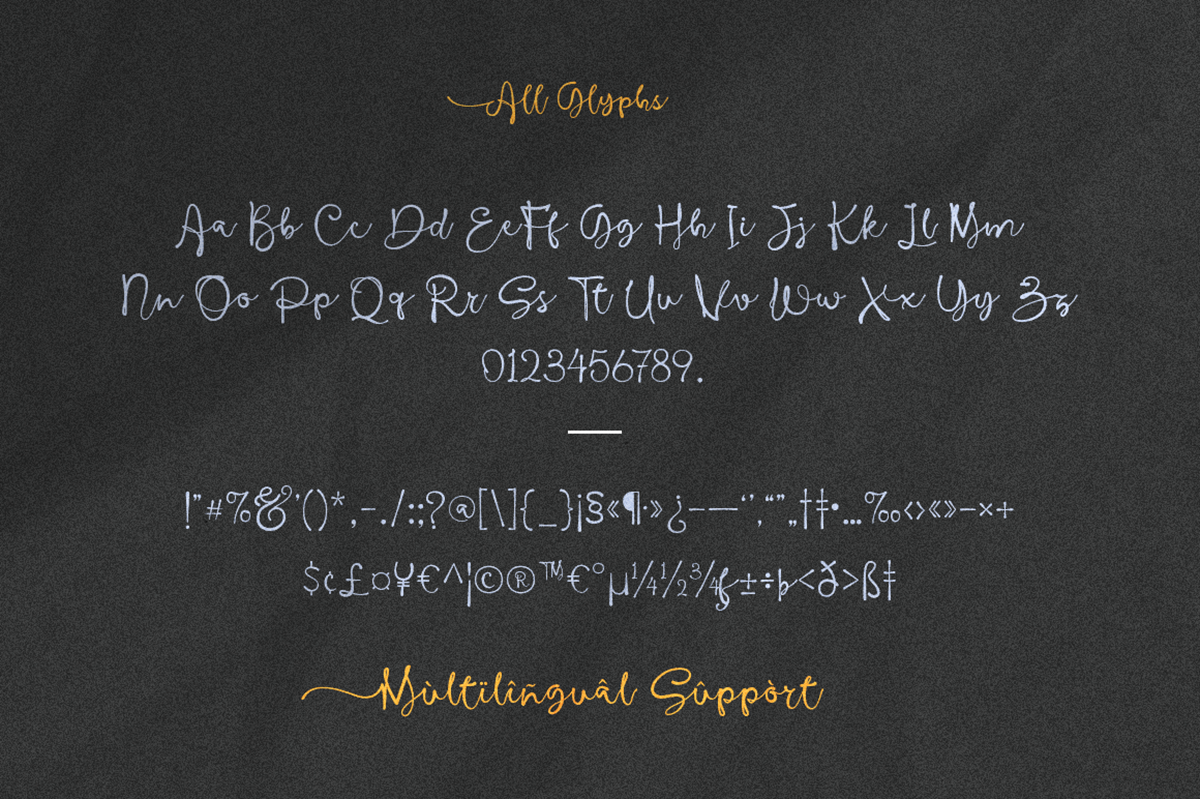 All Glyphs
Aa Bb Cc Dd Ee Ff Gg Hh Ii Jj Kk Ll Mm
Nn Oo Pp Qq Rr Ss Tt Uu Vv Ww Xx Yy Zz
0123456789.
!"#%&'()*,-./:;?@[\]{_}¡§«¶·»¿–—‘’‚“”„†‡•…‰‹›«»−×+
$¢£¤¥€^¦©®™€°µ¼½¾ƒ±÷þ<ð>ßǂ
Mùltïlîñguâl Sûppòrt